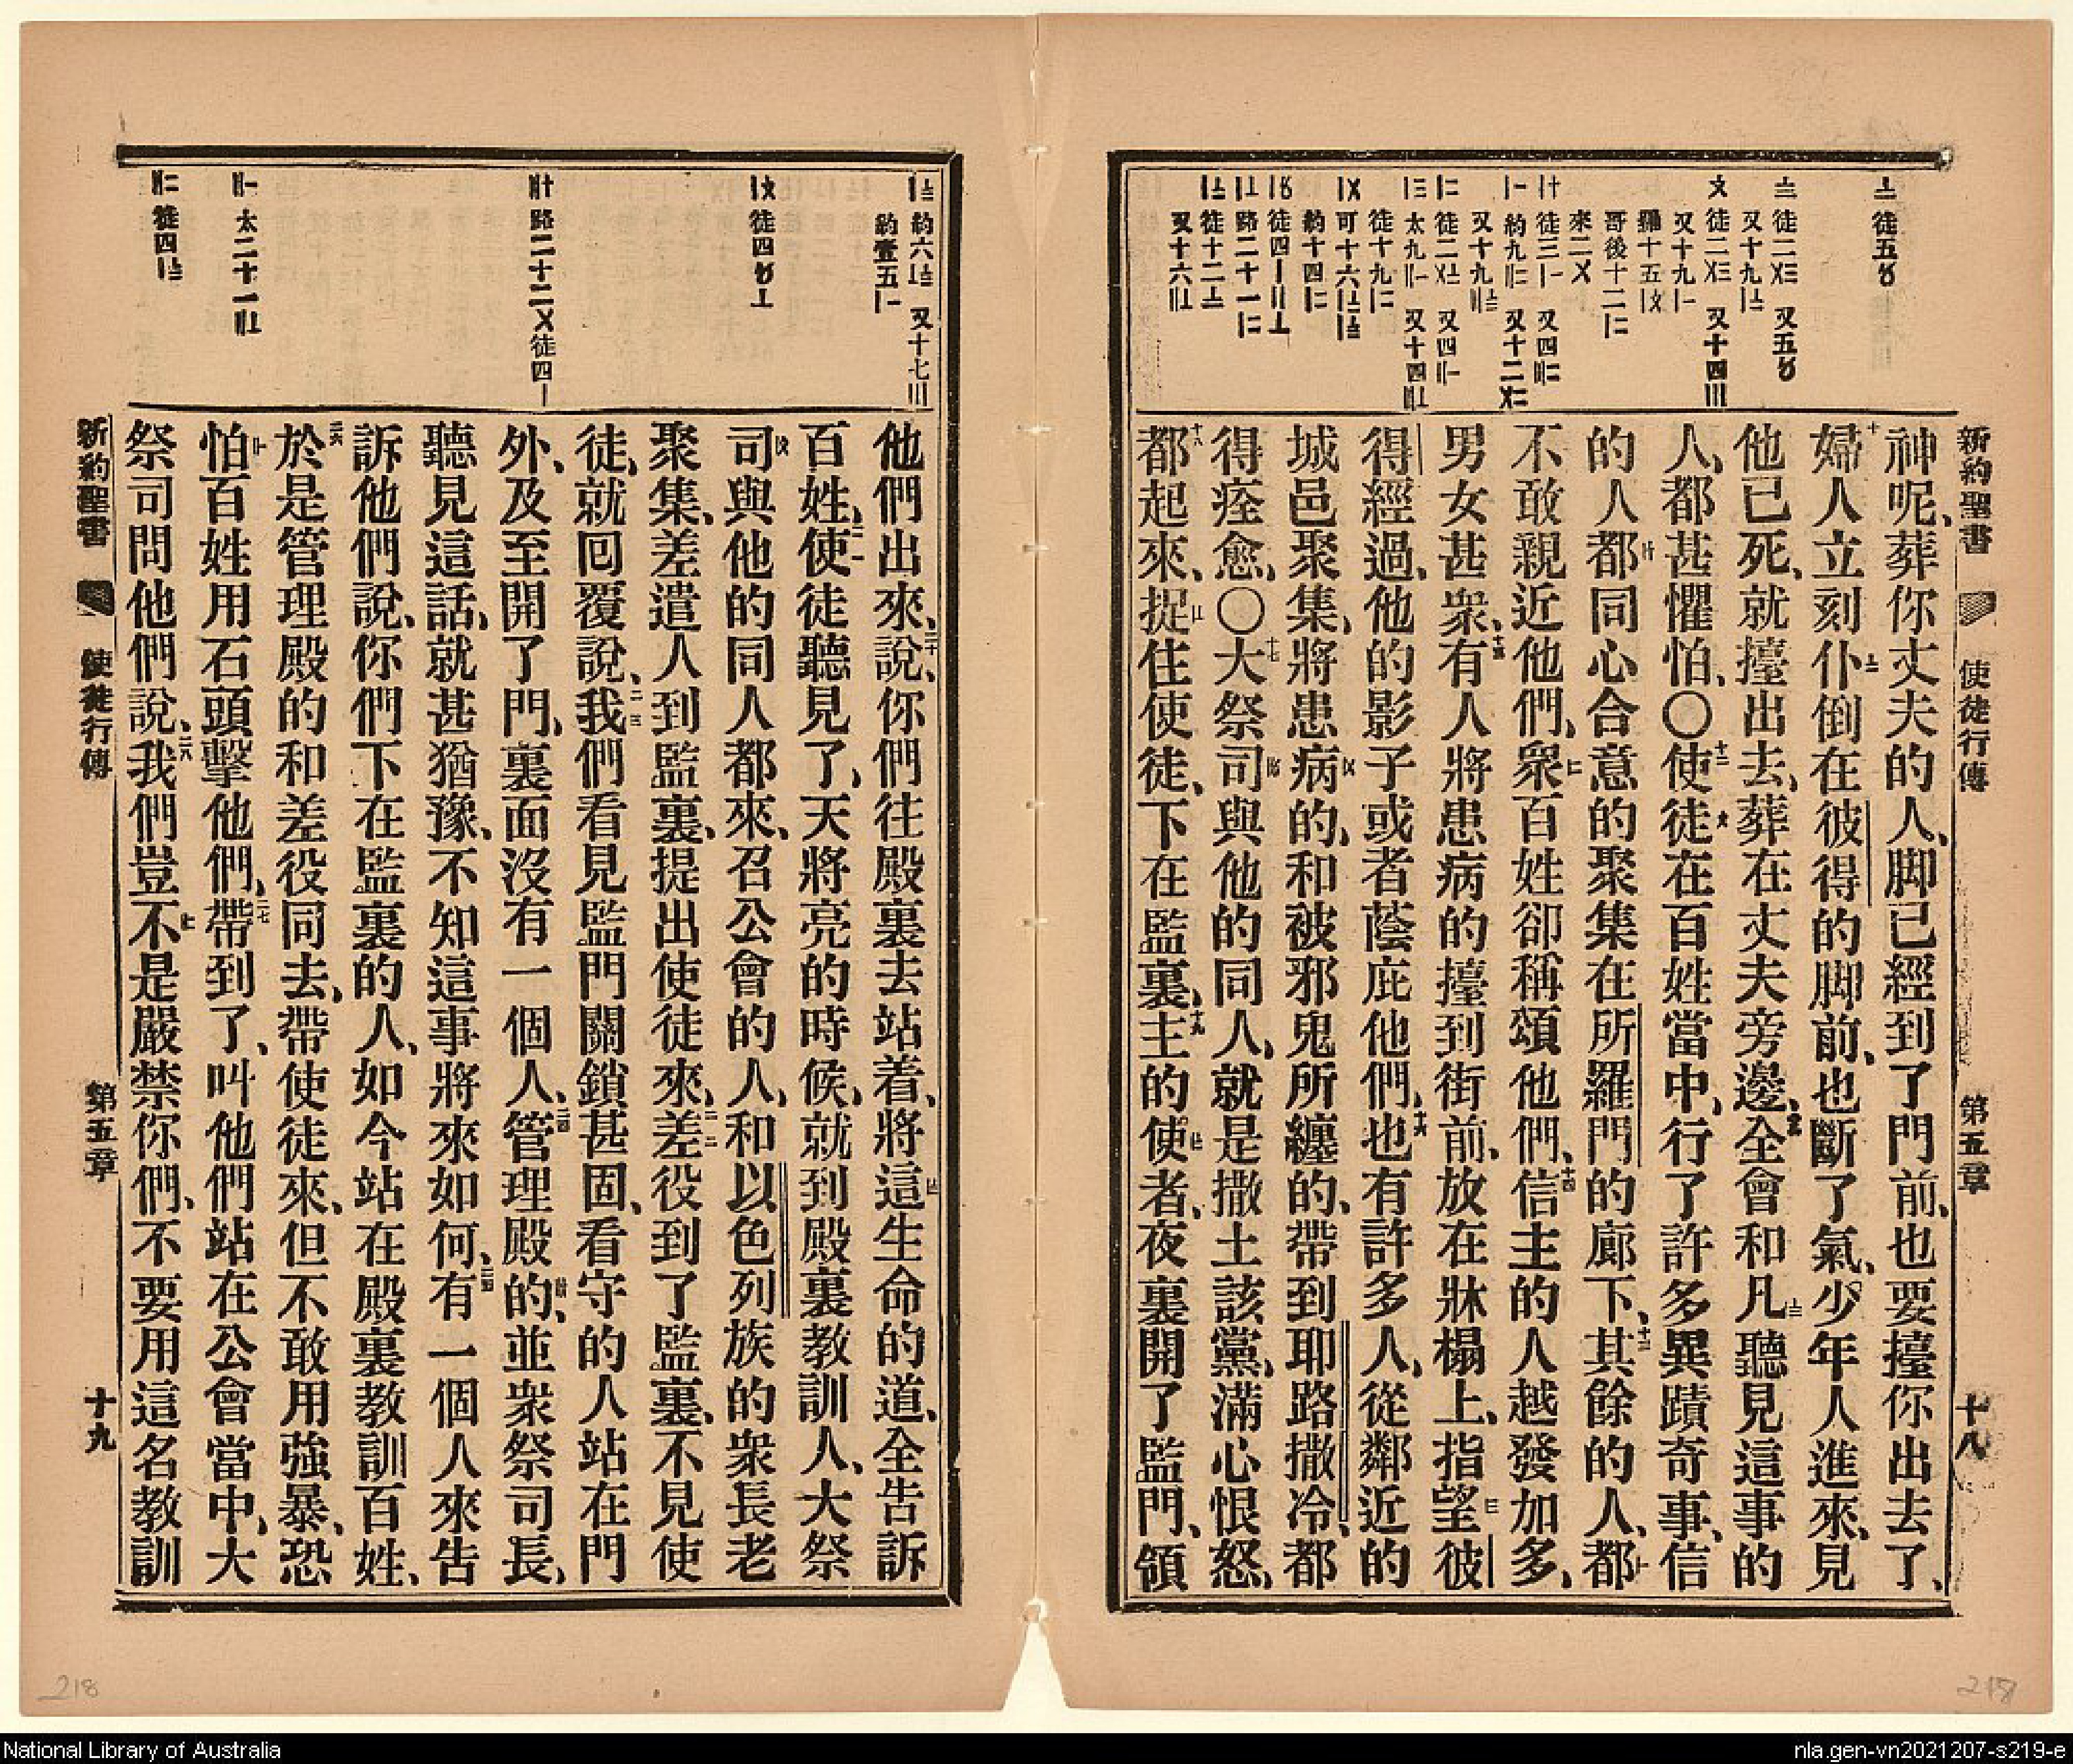 新約聖書 使徒行傳 第五章 十八
神呢、葬你丈夫的人、脚已經到了門前、也要擡你出去了、
十婦人立刻仆倒在彼得的脚前、也斷了氣、少年人進來、見
他已死、就擡出去、葬在丈夫旁邊、全會和凡聽見這事的
人、都甚懼怕、〇十二使徒在百姓當中、行了許多異蹟奇事、信
的人都同心合意的聚集在所羅門的廊下、十三其餘的人、都
不敢親近他們、衆百姓卻稱頌他們、十四信主的人越發加多、
男女甚衆、十五有人將患病的擡到街前、放在牀榻上、指望彼
得經過、他的影子或者蔭庇他們、十六也有許多人、從鄰近的
城邑聚集、將患病的、和被邪鬼所纏的、帶到耶路撒冷、都
得痊愈、〇十七大祭司與他的同人、就是撒土該黨、滿心恨怒、
十八都起來、捉住使徒、下在監裏、十九主的使者、夜裏開了監門、領
他們出來、說、二十你們往殿裏去站着、將這生命的道、全告訴
百姓、二一使徒聽見了、天將亮的時候、就到殿裏教訓人、大祭
司與他的同人都來、召公會的人、和以色列族的衆長老
聚集、差遣人到監裏、提出使徒來、二二差役到了監裏、不見使
徒、就囘覆說、二三我們看見監門關鎖甚固、看守的人站在門
外、及至開了門、裏面沒有一個人、二四管理殿的、並衆祭司長、
聽見這話、就甚猶豫、不知這事將來如何、二五有一個人來告
訴他們說、你們下在監裏的人、如今站在殿裏教訓百姓、
二六於是管理殿的和差役同去、帶使徒來、但不敢用強暴、恐
怕百姓用石頭擊他們、二七帶到了、叫他們站在公會當中、大
祭司問他們說、二八我們豈不是嚴禁你們、不要用這名教訓
新約聖書 使徒行傳 第五章 十九
218
National Library of Australia
nla.gen-vn2021207-s219-e